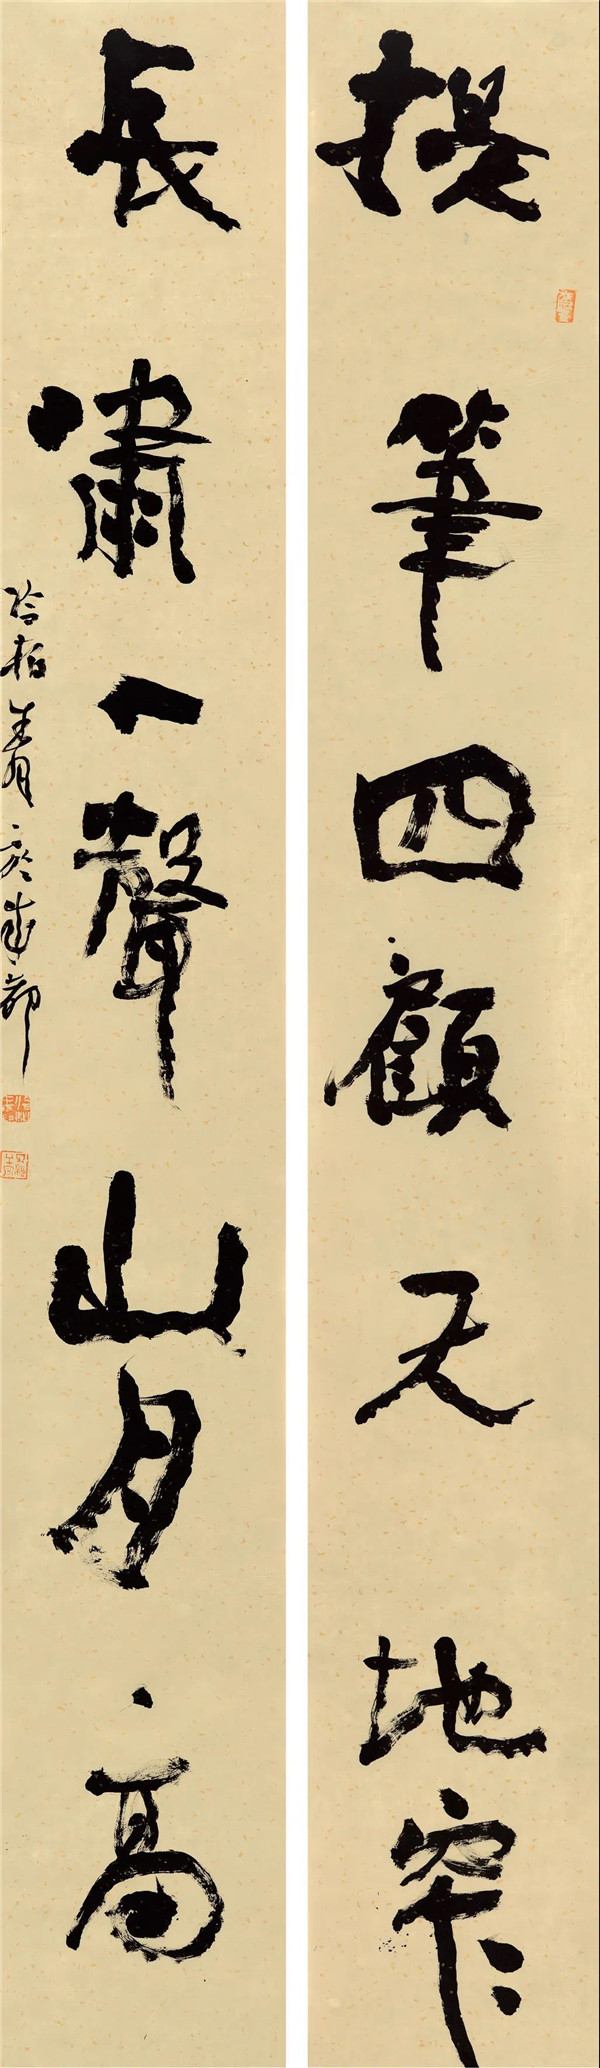 提筆四顧天地窄
長嘯一聲山月高
冷柏青於成都